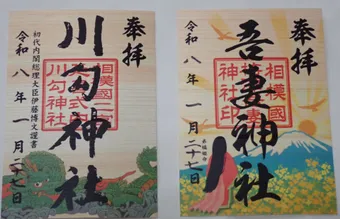 奉拝
川勾神社
相模國二宮
川勾神社
初代内閣総理大臣伊藤博文謹書
令和八年一月二十七日
奉拝
吾妻神社
相模國
神社印
令和八年一月二十七日